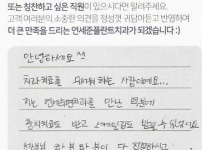 또는 칭찬하고 싶은 직원이 있으시다면 알려주세요.
고객 여러분의 소중한 의견을 정성껏 귀담아듣고 반영하여
더 큰 만족을 드리는 연세준플란트치과가 되겠습니다 :)
안녕하세요^^
치과치료를 무서워 하는 사람이에요...
저는 연세준플란트를 만난
충치치료도 받고 스케일링도 받을 수 있었어요
선생님들 한 분 한 분이 다 친절하시고